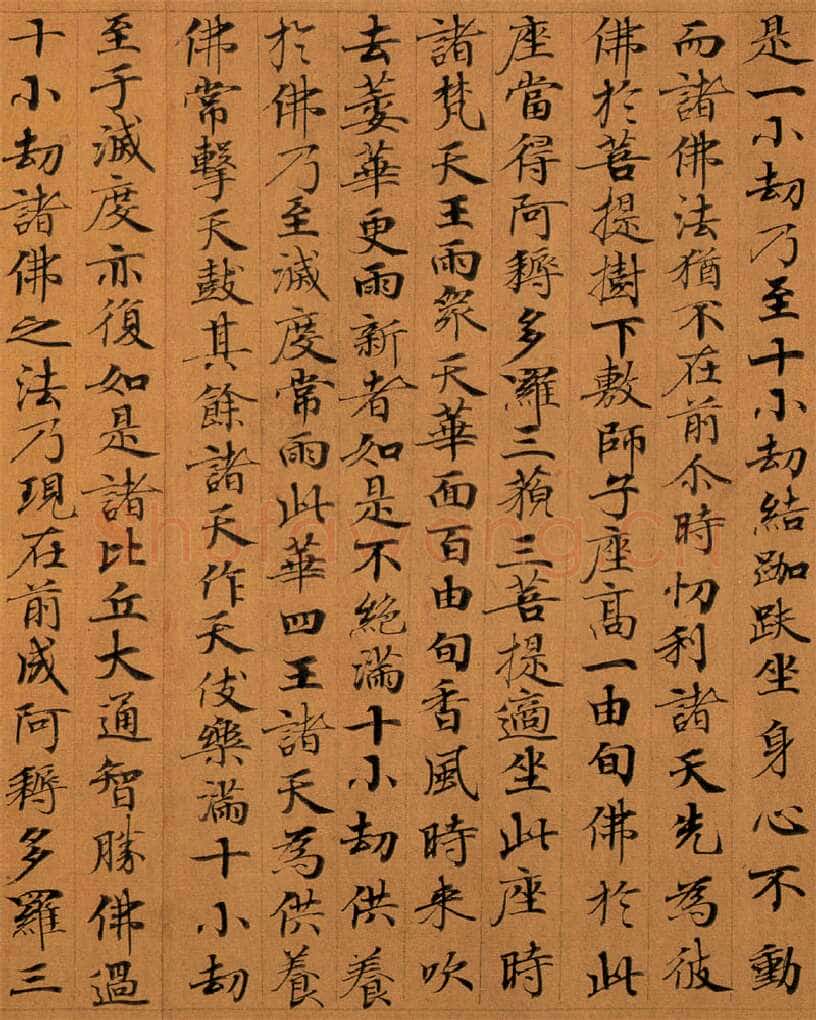 是一小劫乃至十小劫結跏趺坐身心不動
而諸佛法猶不在前尒時忉利諸天先為彼
佛於菩提樹下敷師子座高一由旬佛於此
座當得阿耨多羅三藐三菩提適坐此座時
諸梵天王雨衆天華面百由旬香風時来吹
去萎華更雨新者如是不絶滿十小劫供養
於佛乃至滅度常雨此華四王諸天為供養
佛常擊天鼓其餘諸天作天伎樂滿十小劫
至于滅度亦復如是諸比丘大通智勝佛過
十小劫諸佛之法乃現在前成阿耨多羅三